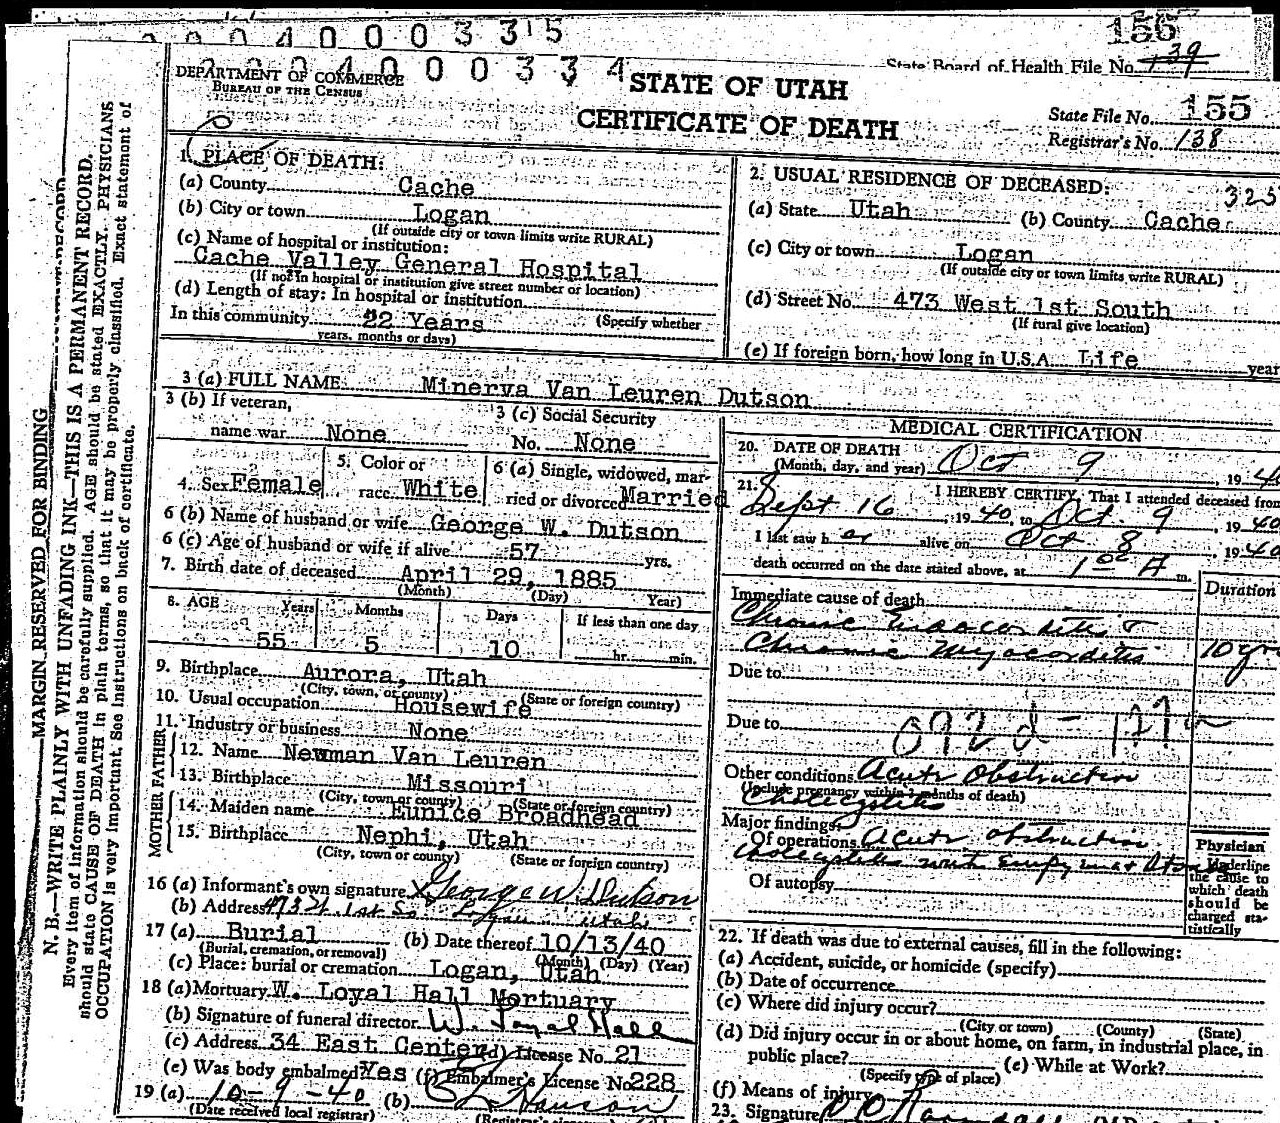 0 0 0 4 0 0 0 3 3 1 5
155
State Board of Health File No. 139
0 0 0 4 0 0 0 3 3 4
DEPARTMENT OF COMMERCE
BUREAU OF THE CENSUS
STATE OF UTAH
CERTIFICATE OF DEATH
State File No. 155
Registrar's No. 138
MARGIN RESERVED FOR BINDING
N. B.—WRITE PLAINLY WITH UNFADING INK—THIS IS A PERMANENT RECORD.
Every item of information should be carefully supplied. AGE should be stated EXACTLY. PHYSICIANS
should state CAUSE OF DEATH in plain terms, so that it may be properly classified. Exact statement of
OCCUPATION is very important. See instructions on back of certificate.
1. PLACE OF DEATH:
(a) County Cache
(b) City or town Logan
(If outside city or town limits write RURAL)
(c) Name of hospital or institution:
Cache Valley General Hospital
(If not in hospital or institution give street number or location)
(d) Length of stay: In hospital or institution
In this community 22 Years (Specify whether
years, months or days)
2. USUAL RESIDENCE OF DECEASED:
325
(a) State Utah (b) County Cache
(c) City or town Logan
(If outside city or town limits write RURAL)
(d) Street No. 473 West 1st South
(If rural give location)
(e) If foreign born, how long in U.S.A. Life year
3 (a) FULL NAME Minerva Van Leuren Dutson
3 (b) If veteran,
name war None
3 (c) Social Security
No. None
4. Sex Female
5. Color or
race White
6 (a) Single, widowed, mar-
ried or divorced Married
6 (b) Name of husband or wife George W. Dutson
6 (c) Age of husband or wife if alive 57 yrs.
7. Birth date of deceased April 29, 1885
(Month) (Day) Year)
8. AGE Years Months Days If less than one day
55 5 10 hr. min.
9. Birthplace Aurora, Utah
(City, town, or county) (State or foreign country)
10. Usual occupation Housewife
11. Industry or business None
FATHER
12. Name Newman Van Leuren
13. Birthplace Missouri
(City, town or county) (State of foreign country)
MOTHER
14. Maiden name Eunice Broadhead
15. Birthplace Nephi, Utah
(City, town or county) (State or foreign country)
16 (a) Informant's own signature George W. Dutson
(b) Address 473 W. 1st So. Logan Utah
17 (a) Burial (b) Date thereof 10/13/40
(Burial, cremation, or removal) (Month) (Day) (Year)
(c) Place: burial or cremation Logan, Utah
18 (a) Mortuary W. Loyal Hall Mortuary
(b) Signature of funeral director W. Loyal Hall
(c) Address 34 East Center (d) License No. 21
(e) Was body embalmed? Yes (f) Embalmer's License No. 228
19 (a) 10-9-40 (b)
(Date received local registrar) (Registrar's signature)
MEDICAL CERTIFICATION
20. DATE OF DEATH
(Month, day, and year) Oct 9, 1940
21. I HEREBY CERTIFY, That I attended deceased from
Sept 16, 1940, to Oct 9, 1940
I last saw her alive on Oct 8, 1940
death occurred on the date stated above, at 1 00 A m.
Duration
Immediate cause of death
Chronic Endocarditis &
Chronic Myocarditis 10 yrs
Due to
Due to
Other conditions Acute Obstructive
(Include pregnancy within 3 months of death)
Cholecystitis
Major findings:
Of operations Acute obstructive
Cholecystitis with Empyema &
Of autopsy
Physician
Underline
the cause to
which death
should be
charged sta-
tistically
22. If death was due to external causes, fill in the following:
(a) Accident, suicide, or homicide (specify)
(b) Date of occurrence
(c) Where did injury occur?
(City or town) (County) (State)
(d) Did injury occur in or about home, on farm, in industrial place, in
public place? (e) While at Work?
(Specify type of place)
(f) Means of injury
23. Signature